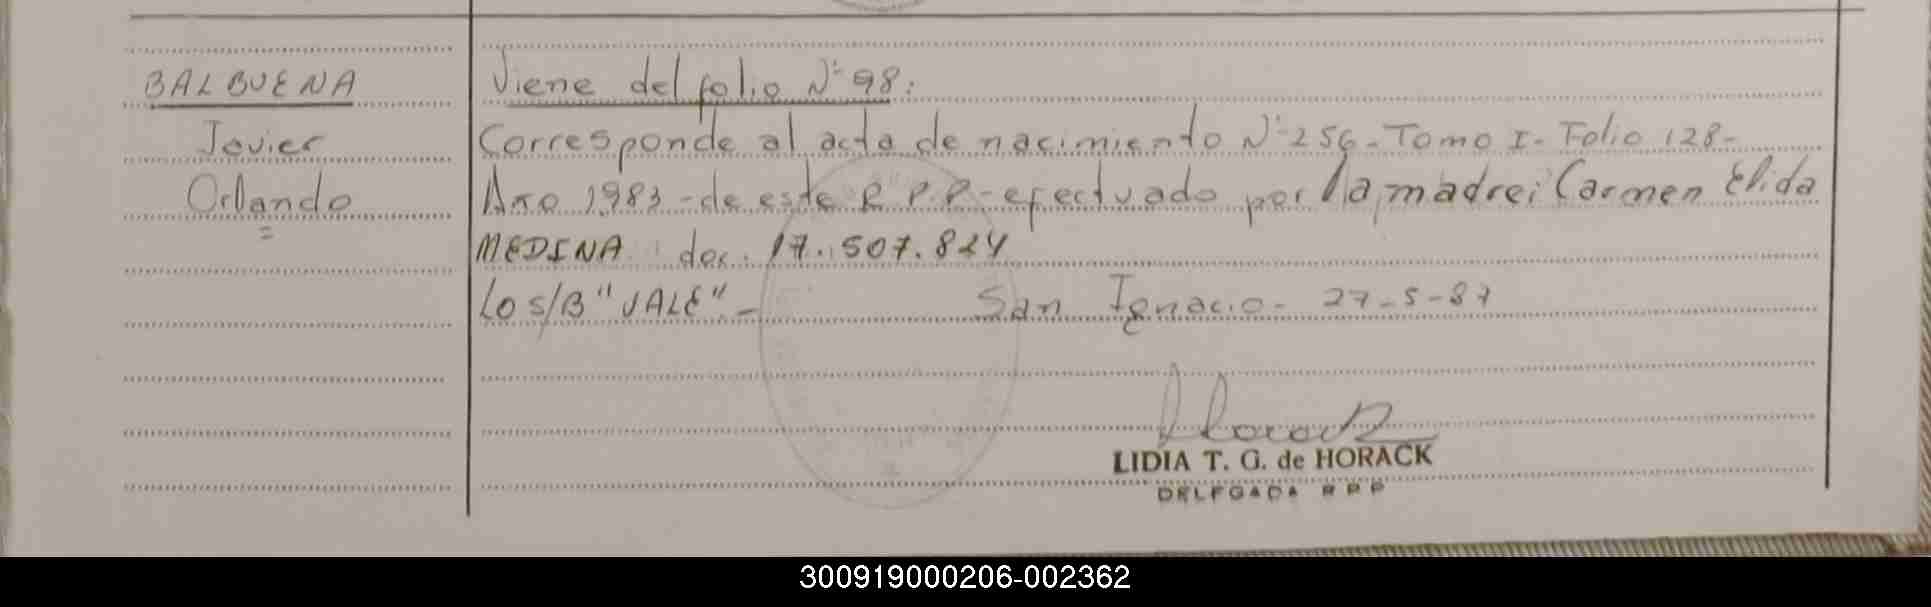 BALBUENA
Javier
Orlando
=
Viene del folio N° 98:
Corresponde al acta de nacimiento N° 256- Tomo I- Folio 128-
Año 1983 - de este R P.P- efectuado por la madre: Carmen Elida
MEDINA doc. 17.507.824
Lo S/B "VALE" -
San Ignacio- 27-5-87
Horack
LIDIA T. G. de HORACK
DELEGADA RPP
300919000206-002362